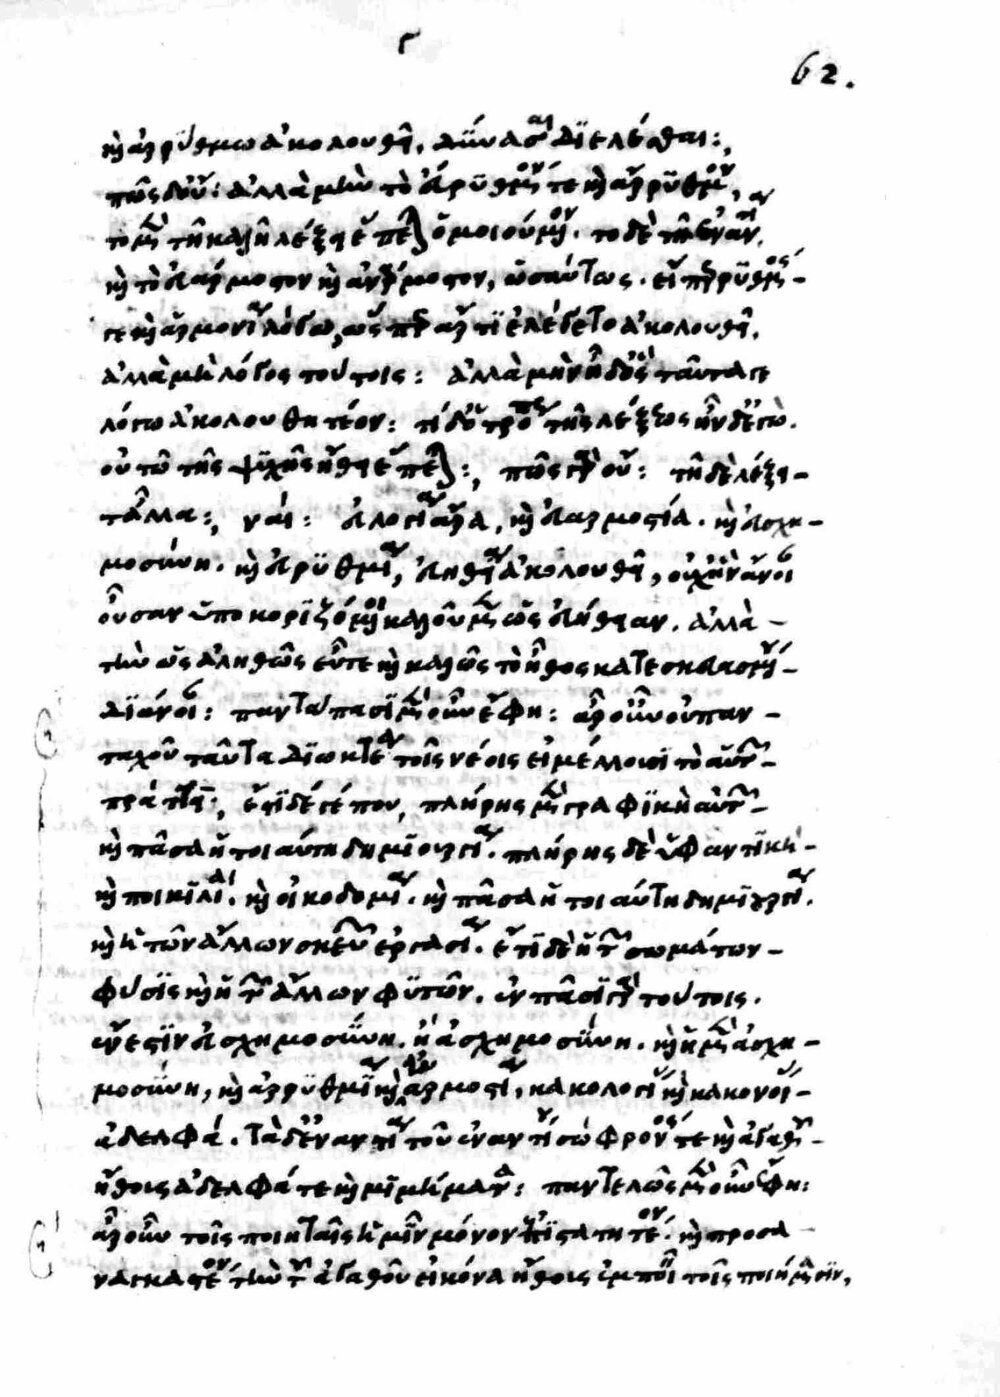 καὶ ἀρρύθμω ἀκολουθεῖ, δύνασαι διελέσθαι;
πῶς δ' οὔ: ἀλλὰ μὴν τὸ εὔρυθμόν τε καὶ ἄρρυθμον,
τὸ μὲν τῇ καλῇ λέξει ἕπεται ὁμοιούμενον. τὸ δὲ τῇ ἐναντίαν.
καὶ τὸ εὐάρμοστον καὶ ἀνάρμοστον, ὡσαύτως. εἴπερ ῥυθμός-
γε καὶ ἁρμονία λόγω, ὥσπερ ἄρτι ἐλέγετο ἀκολουθεῖ.
ἀλλὰ μὴ λόγος τούτοις: ἀλλὰ μὴν ἦ δ' ὃς ταῦτά γε
λόγω ἀκολουθητέον: τί δ' ὁ τρόπος τῆς λέξεως ἦν δ' ἐγώ.
οὐ τῶ τῆς ψυχῆς ἤθει ἕπεται; πῶς γὰρ οὔ: τῇ δὲ λέξει-
τἆλλα; ναί: εὐλογία ἄρα, καὶ εὐαρμοστία. καὶ εὐσχη-
μοσύνη. καὶ εὐρυθμία, εὐηθεία ἀκολουθεῖ, οὐχ ἣν ἄνοιαν
οὖσαν ὑποκοριζόμενοι καλοῦμεν ὡς εὐήθειαν. ἀλλὰ-
τὴν ὡς ἀληθῶς εὖ τε καὶ καλῶς τὸ ἦθος κατεσκευασμένην-
διάνοιαν: παντάπασι μὲν οὖν ἔφη: ἆρ' οὖν οὐ παν-
ταχοῦ ταῦτα διωκτέα τοῖς νέοις εἰ μέλλουσι τὸ αὑτῶν-
πράττειν; ἔστι δέ γέ που, πλήρης μὲν γραφικὴ αὐτῶν-
καὶ πᾶσα ἡ τοιαύτη δημιουργία. πλήρης δὲ ὑφαντικὴ-
καὶ ποικιλία. καὶ οἰκοδομία. καὶ πᾶσα ἡ τοιαύτη δημιουργία.
καὶ ἡ τῶν ἄλλων σκευῶν ἐργασία. ἔτι δὲ ἡ τῶν σωμάτων-
φύσις καὶ ἡ τῶν ἄλλων φυτῶν. ἐν πᾶσι γὰρ τούτοις.
ἔνεστιν εὐσχημοσύνη. ἢ ἀσχημοσύνη. καὶ ἡ μὲν ἀσχη-
μοσύνη, καὶ ἀρρυθμία καὶ ἀναρμοστία, κακολογίας καὶ κακονοίας-
ἀδελφά. τὰ δ' ἐναντία τοῦ ἐναντίου σώφρονός τε καὶ ἀγαθοῦ-
ἤθους ἀδελφά τε καὶ μιμήματα: παντελῶς μὲν οὖν ἔφη:
ἆρ' οὖν τοῖς ποιηταῖς ἡμῖν μόνον ἐπιστατητέον. καὶ προσα-
ναγκαστέον τὴν τοῦ ἀγαθοῦ εἰκόνα ἤθους ἐμποιεῖν τοῖς ποιήμασιν,